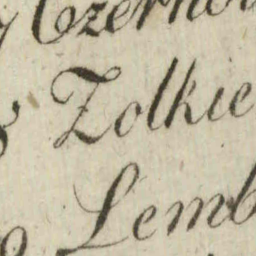 Czerno
Zolkie
Lemb